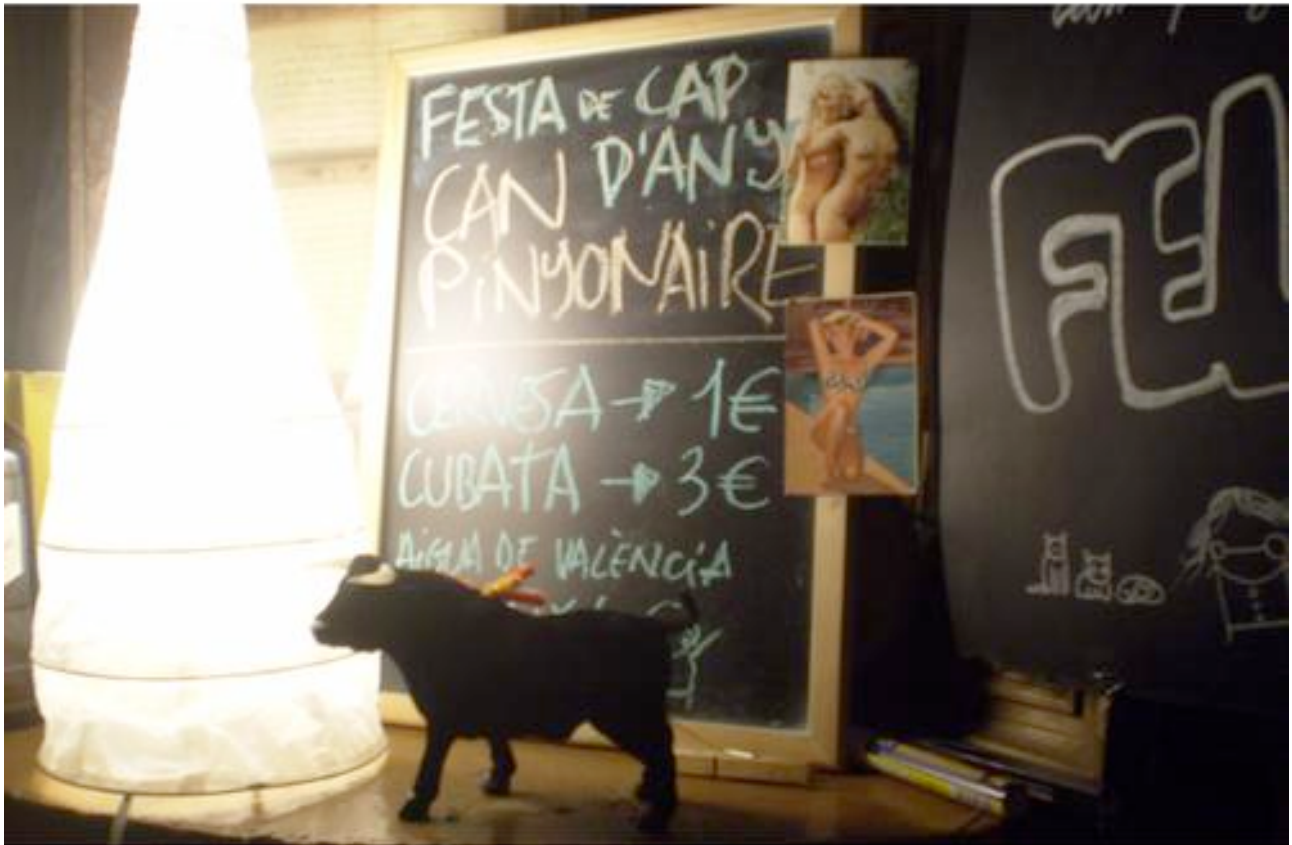 FESTA DE CAP
D'ANY
CAN
PINYONAIRE
CERVESA → 1€
CUBATA → 3€
AIGUA DE VALÈNCIA
FEL